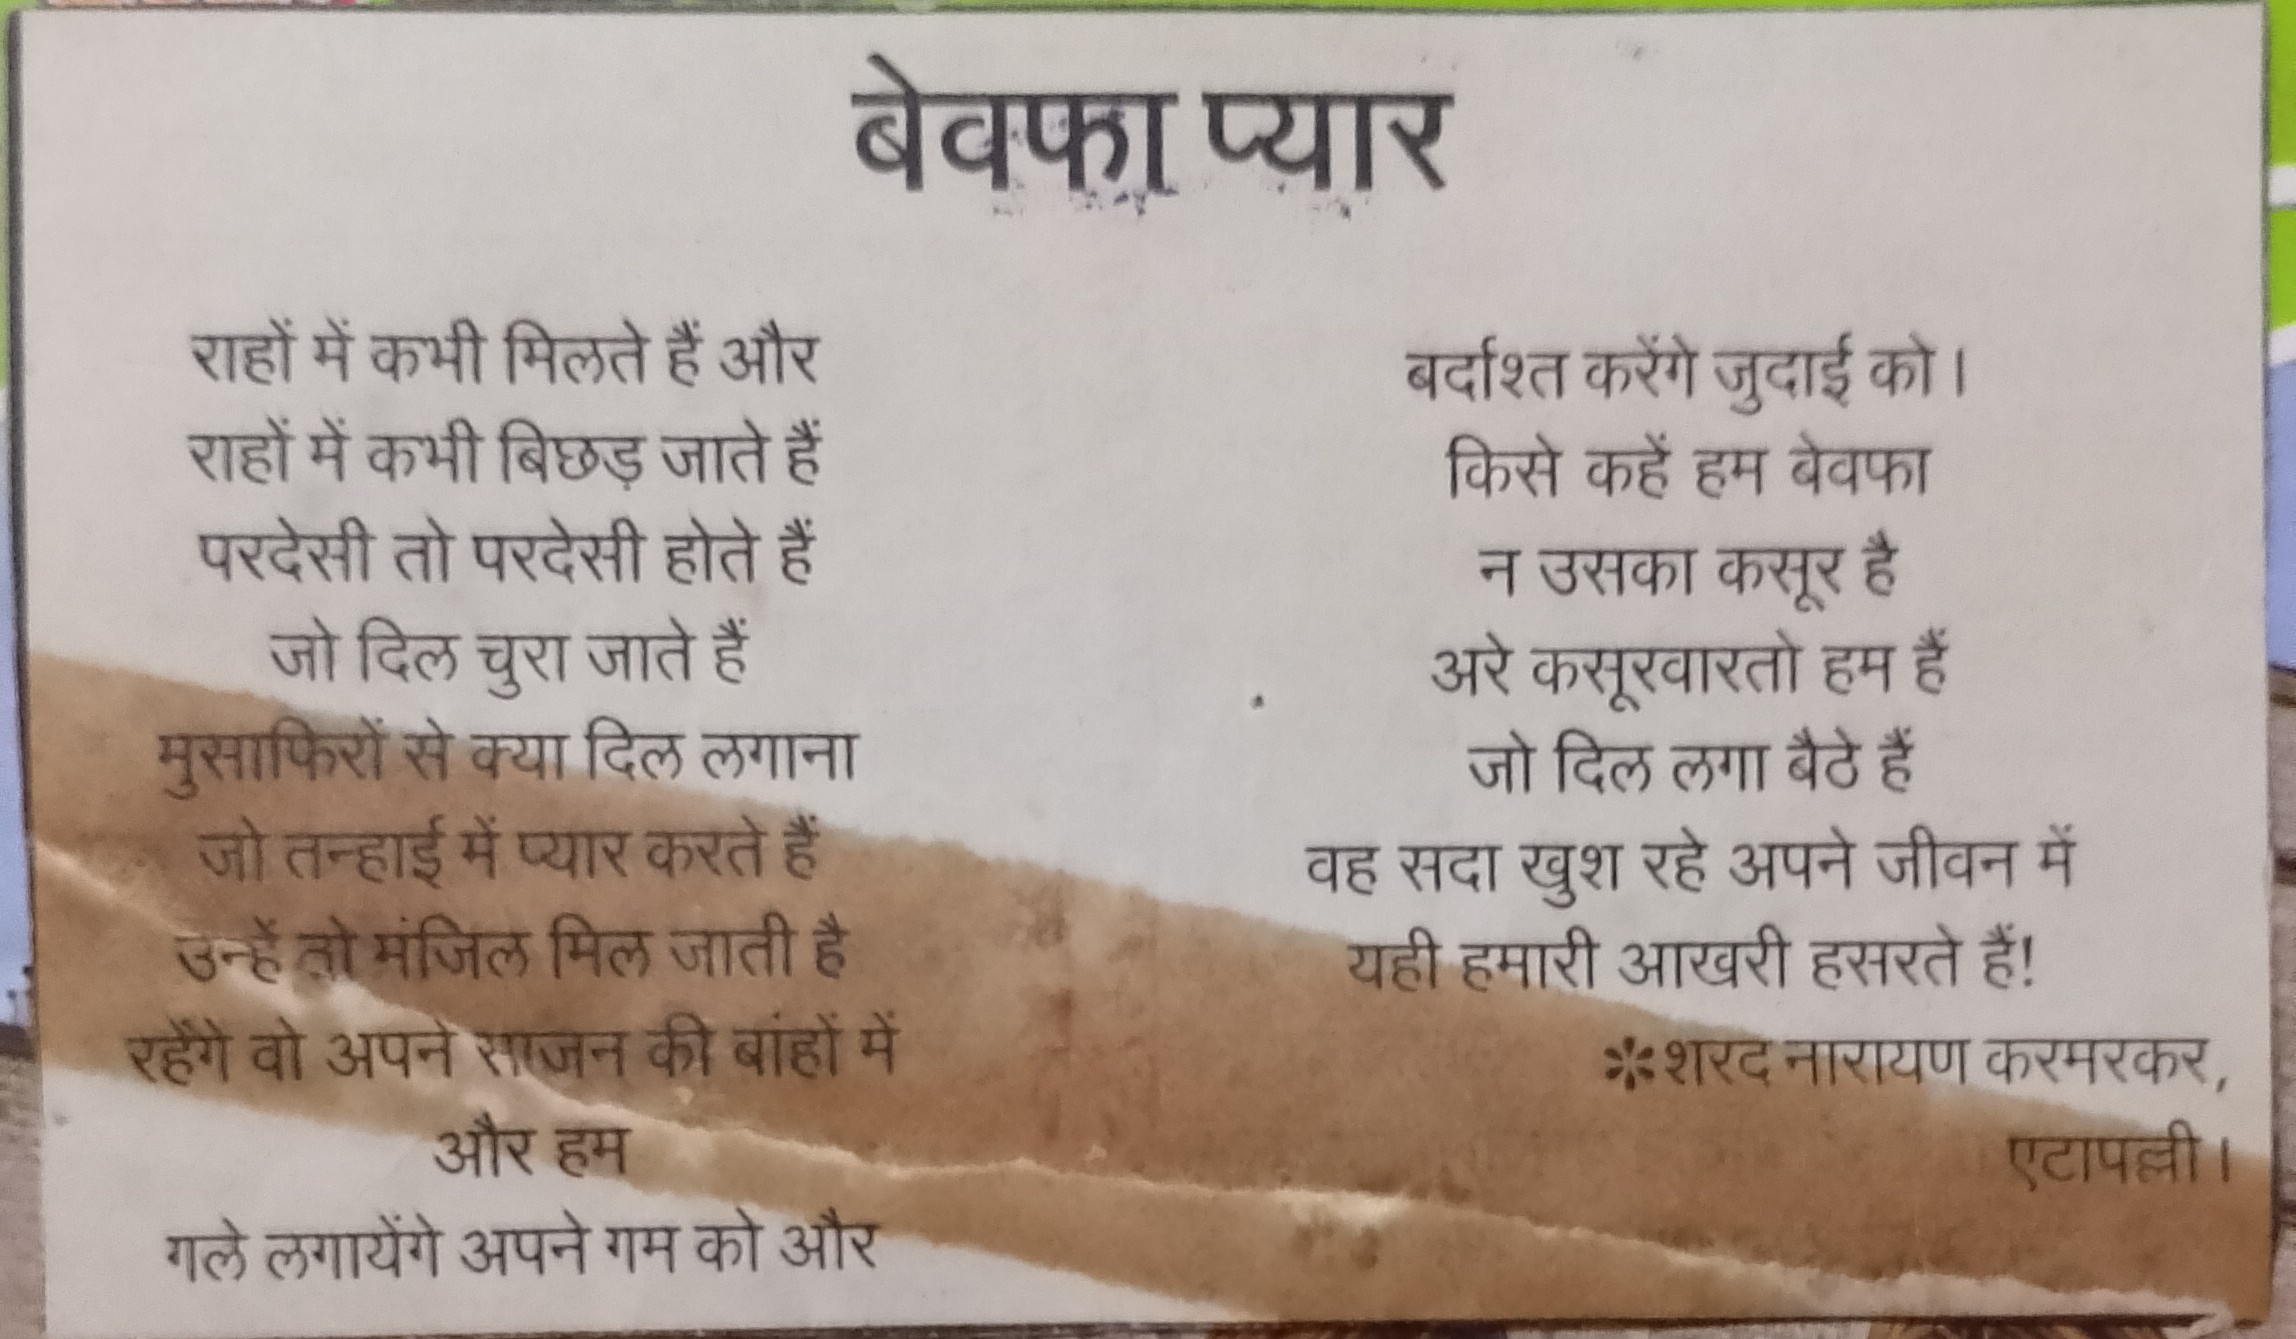 बेवफा प्यार
राहों में कभी मिलते हैं और
राहों में कभी बिछड़ जाते हैं
परदेसी तो परदेसी होते हैं
जो दिल चुरा जाते हैं
मुसाफिरों से क्या दिल लगाना
जो तन्हाई में प्यार करते हैं
उन्हें तो मंजिल मिल जाती है
रहेंगे वो अपने साजन की बांहों में
और हम
गले लगायेंगे अपने गम को और
बर्दाश्त करेंगे जुदाई को।
किसे कहें हम बेवफा
न उसका कसूर है
अरे कसूरवारतो हम हैं
जो दिल लगा बैठे हैं
वह सदा खुश रहे अपने जीवन में
यही हमारी आखरी हसरते हैं!
✼शरद नारायण करमरकर,
एटापल्ली।